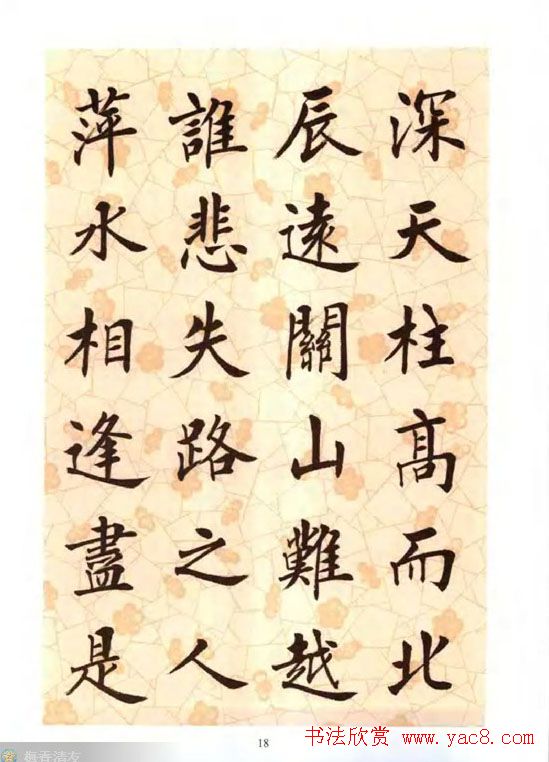 深天柱高而北
辰遠關山難越
誰悲失路之人
萍水相逢盡是
18
书法欣赏 www.yac8.com
梅香清友